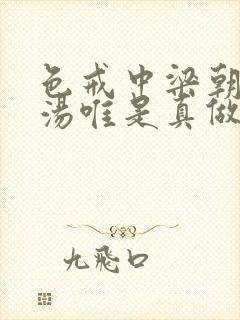 色戒中梁朝
汤唯是真做
九飛口